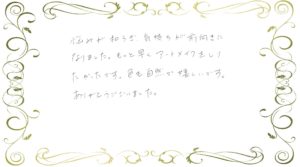 悩みが和らぎ、気持ちが前向きに
なりました。もっと早くアートメイクをし
たかったです。色も自然で嬉しいです。
ありがとうございました。